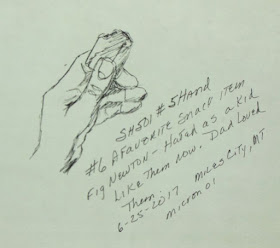 SH501 #5 Hand
#6 A Favorite Small Item
Fig Newton - Hated as a Kid
Like Them now. Dad Loved
Them.
6-25-2017 Miles City, MT
micron 01